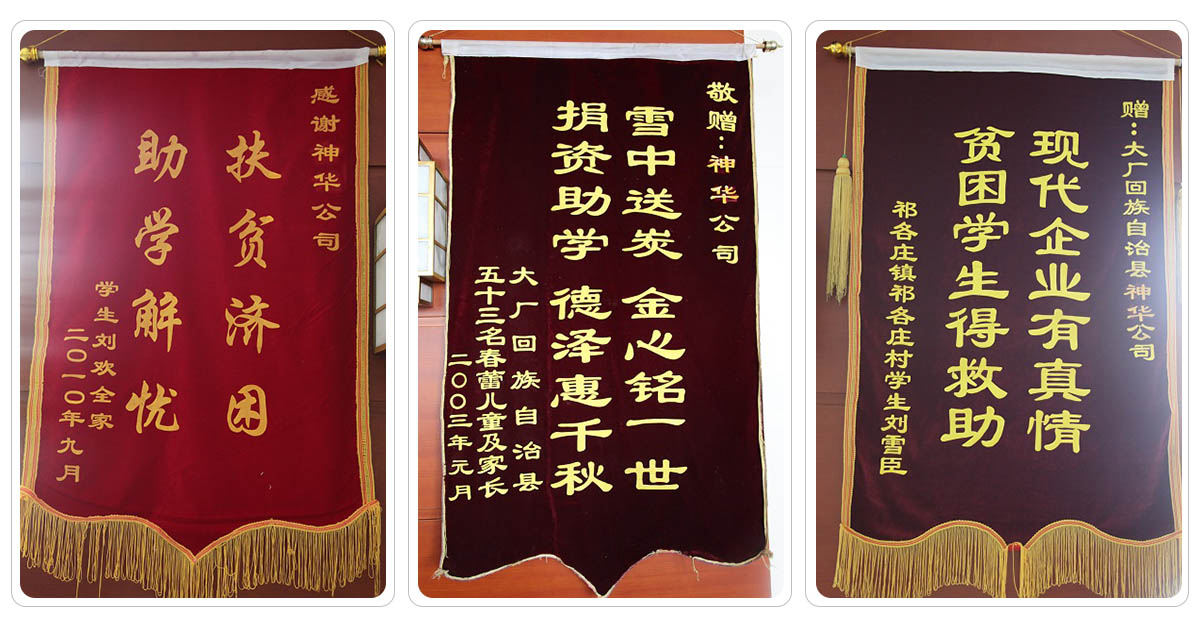 感谢神华公司
扶贫济困
助学解忧
学生刘欢全家
二〇一〇年九月
敬赠：神华公司
雪中送炭 金心铭一世
捐资助学 德泽惠千秋
大厂回族自治县
五十三名春蕾儿童及家长
二〇〇三年元月
赠：大厂回族自治县神华公司
现代企业有真情
贫困学生得救助
祁各庄镇祁各庄村学生刘雪臣